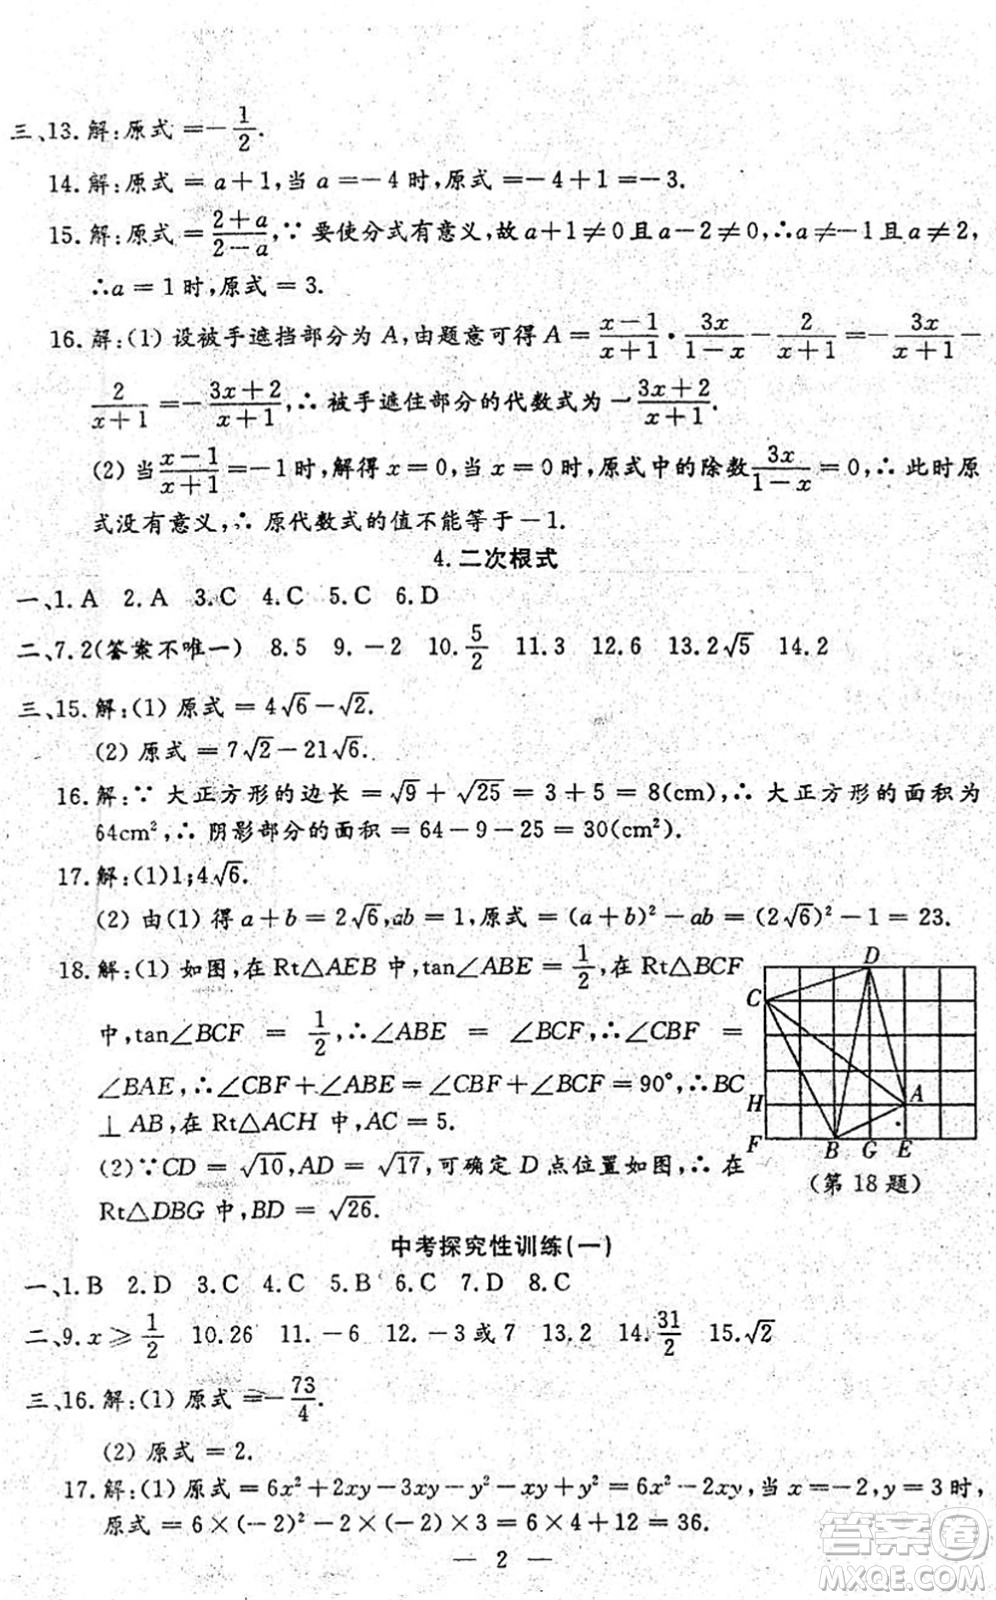 三、13. 解:原式 =-1/2.
14. 解:原式 = a+1,当 a=-4 时,原式 =-4+1=-3.
15. 解:原式 = (2+a)/(2-a),∵ 要使分式有意义,故 a+1≠0 且 a-2≠0,∴a≠-1 且 a≠2,
∴a = 1 时,原式 = 3.
16. 解:(1) 设被手遮挡部分为 A,由题意可得 A = (x-1)/(x+1) · 3x/(1-x) - 2/(x+1) =- 3x/(x+1) -
2/(x+1) =- (3x+2)/(x+1),∴ 被手遮住部分的代数式为 - (3x+2)/(x+1).
(2) 当 (x-1)/(x+1) =-1 时,解得 x = 0,当 x = 0 时,原式中的除数 3x/(1-x) = 0,∴ 此时原
式没有意义,∴ 原代数式的值不能等于 -1.
4. 二次根式
一、1. A 2. A 3. C 4. C 5. C 6. D
二、7. 2(答案不唯一) 8. 5 9. -2 10. 5/2 11. 3 12. 6 13. 2√5 14. 2
三、15. 解:(1) 原式 = 4√6-√2.
(2) 原式 = 7√2-21√6.
16. 解:∵ 大正方形的边长 = √9 + √25 = 3+5 = 8(cm),∴ 大正方形的面积为
64cm²,∴ 阴影部分的面积 = 64-9-25 = 30(cm²).
17. 解:(1)1;4√6.
(2) 由(1) 得 a+b = 2√6,ab = 1,原式 = (a+b)²-ab = (2√6)²-1 = 23.
18. 解:(1) 如图,在 Rt△AEB 中,tan∠ABE = 1/2,在 Rt△BCF
中,tan∠BCF = 1/2,∴∠ABE = ∠BCF,∴∠CBF =
∠BAE,∴∠CBF+∠ABE = ∠CBF+∠BCF = 90°,∴BC
⊥ AB,在 Rt△ACH 中,AC = 5.
(2)∵CD = √10,AD = √17,可确定 D 点位置如图,∴ 在
Rt△DBG 中,BD = √26.
D
C
H
A
F
B G E
(第 18 题)
中考探究性训练(一)
一、1. B 2. D 3. C 4. C 5. B 6. C 7. D 8. C
二、9. x ⩾ 1/2 10. 26 11. -6 12. -3 或 7 13. 2 14. 31/2 15. √2
三、16. 解:(1) 原式 =-73/4.
(2) 原式 = 2.
17. 解:(1) 原式 = 6x²+2xy-3xy-y²-xy+y² = 6x²-2xy,当 x =-2,y = 3 时,
原式 = 6×(-2)²-2×(-2)×3 = 6×4+12 = 36.
— 2 —
答案卷
MXQE.COM